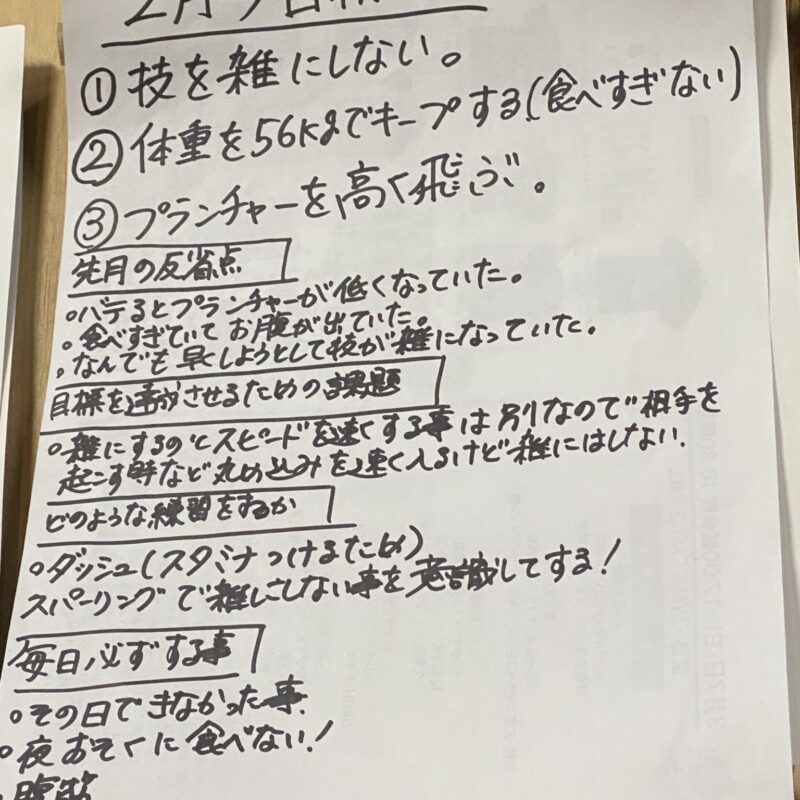 2月の目標
①技を雑にしない。
②体重を56kgでキープする(食べすぎない)
③プランチャーを高く飛ぶ。
先月の反省点
○バテるとプランチャーが低くなっていた。
○食べすぎていてお腹が出ていた。
○なんでも早くしようとして技が雑になっていた。
目標を達成させるための課題
○雑にするのとスピードを速くする事は別なので相手を
起こす時など丸め込みを速く入るけど雑にはしない.
どのような練習をするか
○ダッシュ(スタミナつけるため)
スパーリングで雑にしない事を意識してする!
毎日必ずする事
○その日できなかった事.
○夜おそくに食べない!
腹筋